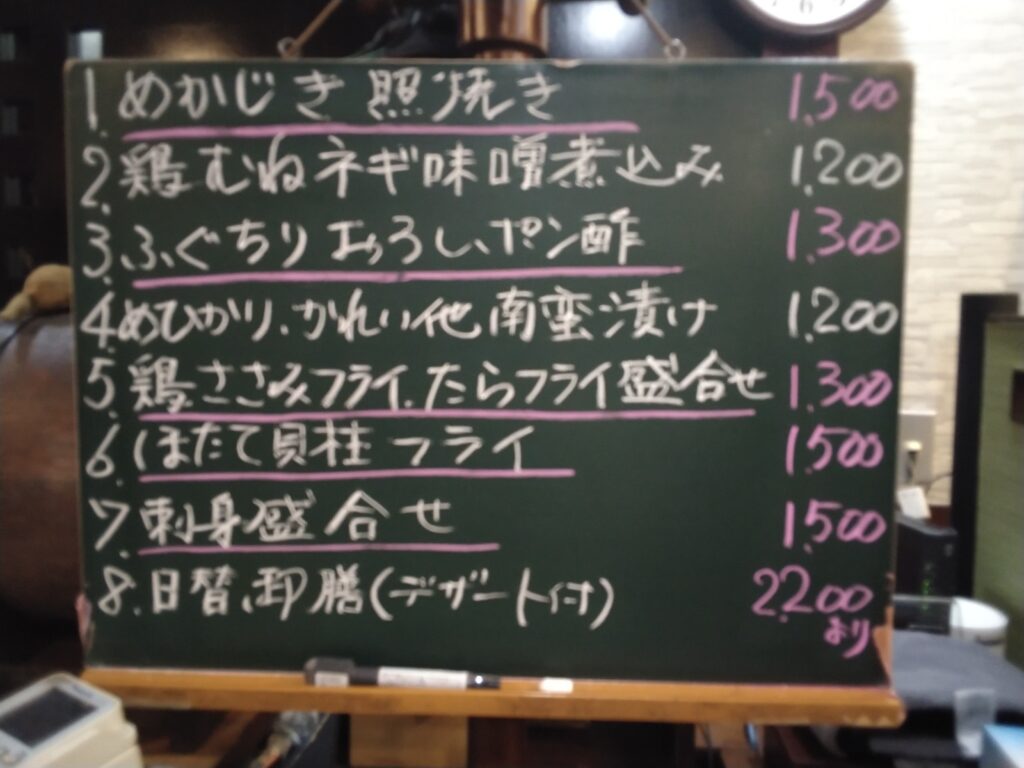 1. めかじき 照焼き 1,500
2. 鶏むねネギ味噌煮込み 1,200
3. ふぐちり おろしポン酢 1,300
4. めひかり、かれい他 南蛮漬け 1,200
5. 鶏ささみフライ、たらフライ盛合せ 1,300
6. ほたて貝柱 フライ 1,500
7. 刺身盛合せ 1,500
8. 日替、御膳(デザート付) 2,200
より